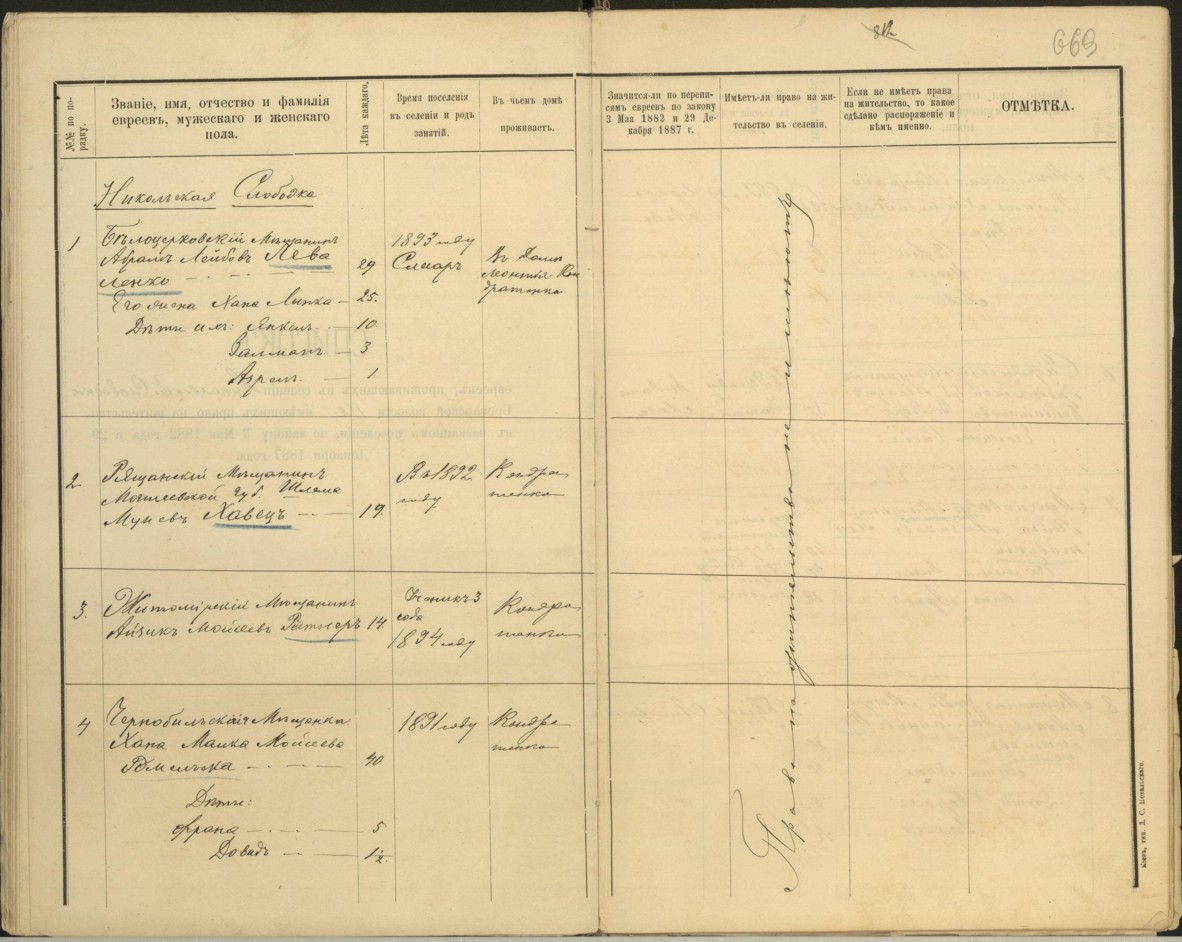 669
№№ по по-
рядку.
Званіе, имя, отчество и фамилія
евреевъ, мужескаго и женскаго
пола.
Лѣта каждаго.
Время поселенія
въ селеніи и родъ
занятій.
Въ чьемъ домѣ
проживаетъ.
Значится-ли по перепи-
сямъ евреевъ по закону
3 Мая 1882 и 29 Де-
кабря 1887 г.
Имѣетъ-ли право на жи-
тельство въ селеніи.
Если не имѣетъ права
на жительство, то какое
сдѣлано распоряженіе и
кѣмъ именно.
ОТМѢТКА.
Никольская Слободка
1
Бѣлоцерковскій Мѣщанинъ
Абрамъ Лейбовъ Лева
ленко
29
1893 году
Столяръ
Въ домѣ
Кон
дратенко
Его жена Хана Липка 25.
Дѣти ихъ: Янкель 10.
Залманъ 3
Азрель 1
2.
Мѣщанинъ
Могилевской губ. Шлема
Хавецъ 19.
Въ 1892
году
Кондра
тенко
3.
Житомірскій Мѣщанинъ
Айзикъ Мойсеевъ 14.
года
1894 году
Кондра
тенко
4
Чернобильскій Мѣщанка
Хана Малка Мойсеева
40
1891 году
Кондра
тенко
Дѣти:
5
Довидъ 1½
Права на жительство не имѣютъ
Кіевъ, тип. Д. С. Повальскаго.